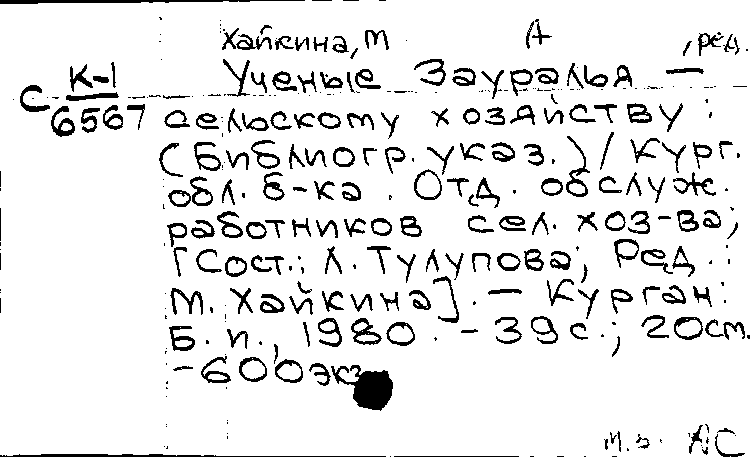 Хайкина, М А , ред.
С К-1 Ученые Зауралья —
6567 сельскому хозяйству :
(Библиогр. указ.) / Кург.
обл. б-ка . Отд. обслуж.
работников сел. хоз-ва;
[Сост.: Л. Тулупова; Ред. :
М. Хайкина]. — Курган:
Б. и., 1980. - 39 с.; 20 см.
- 600 экз
АС